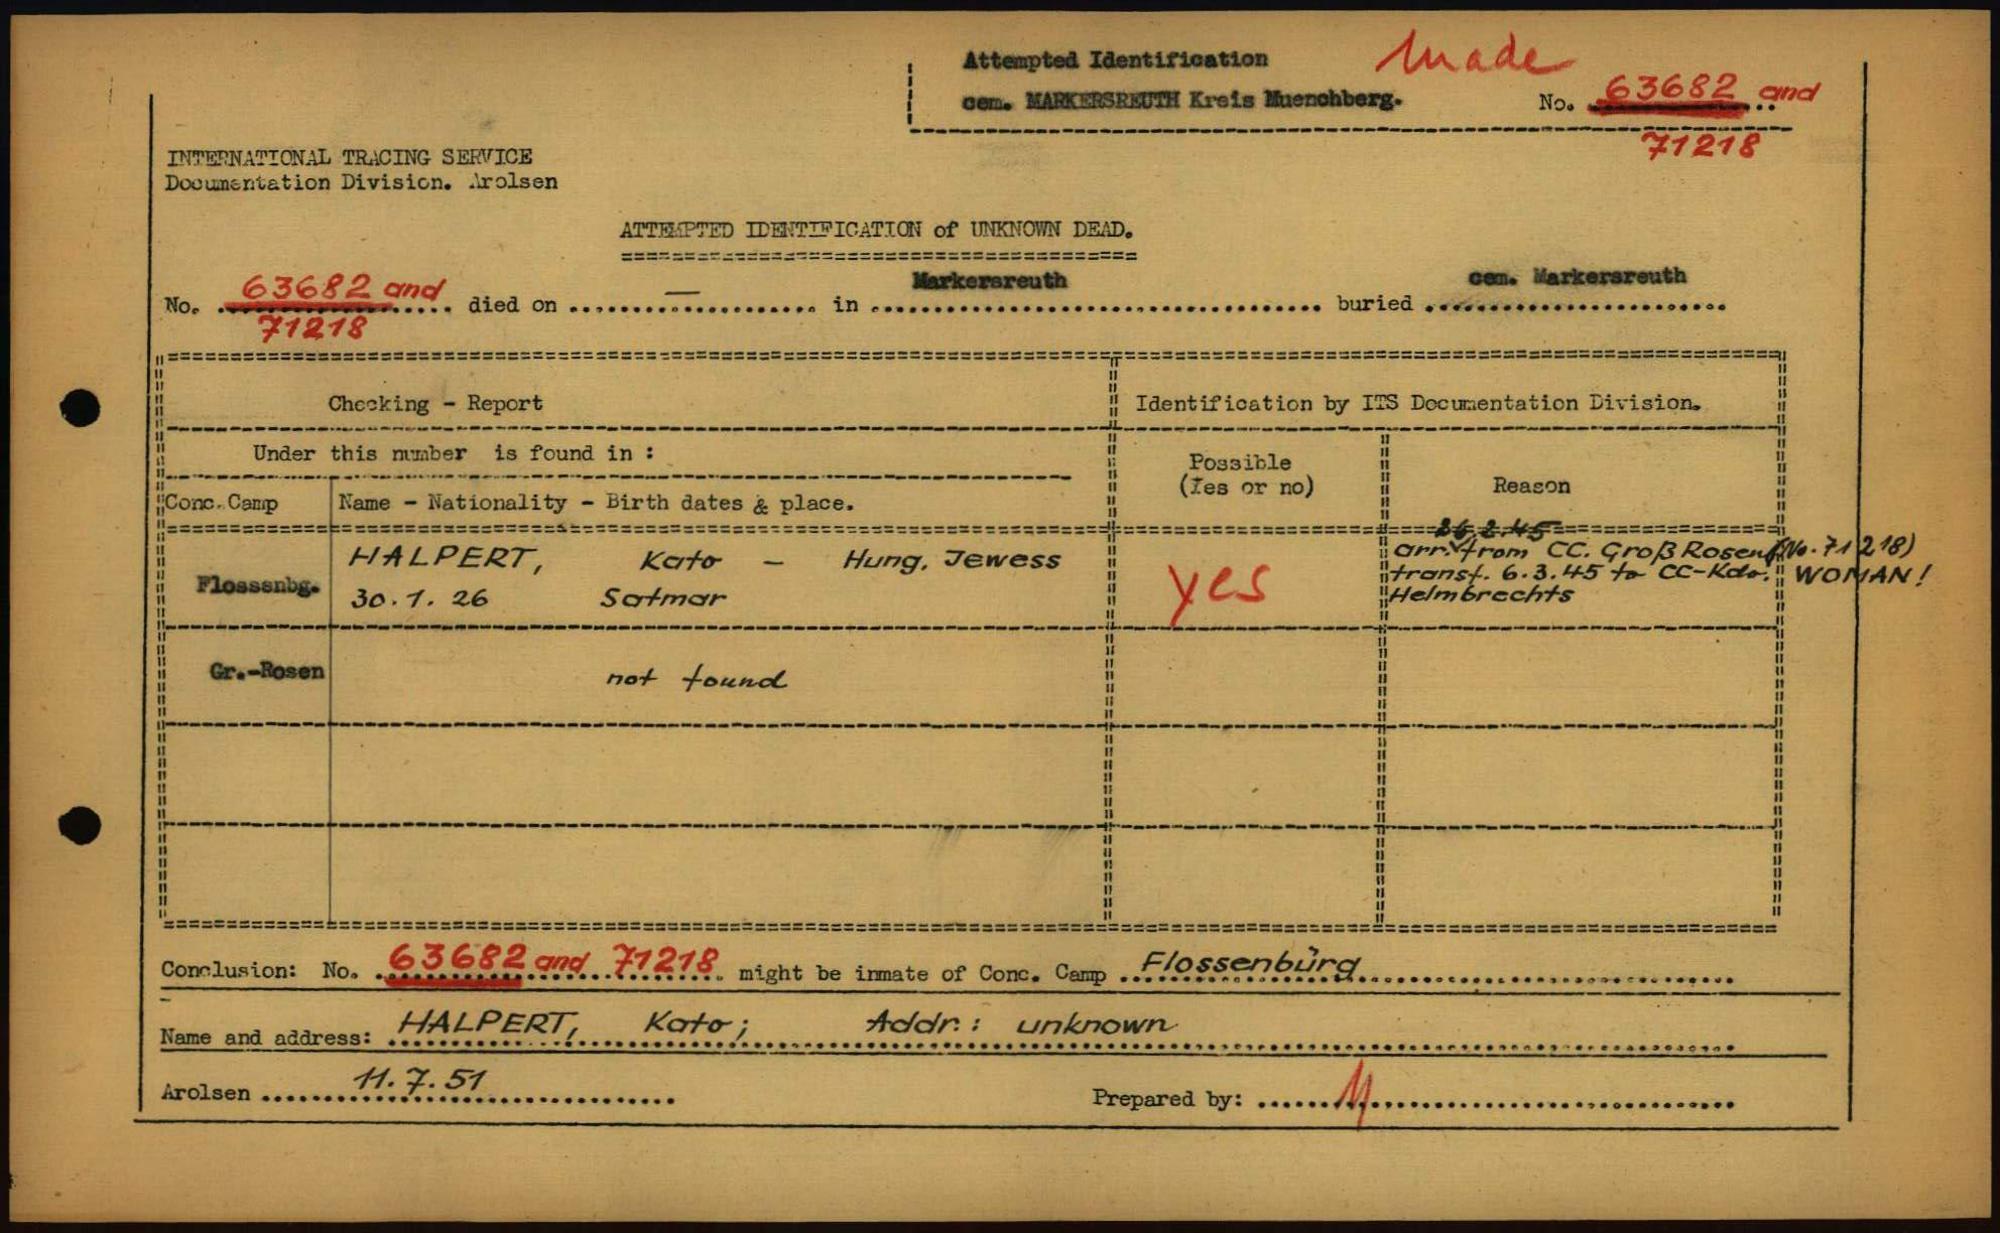 Attempted Identification made
cem. MARKERSREUTH Kreis Muenchberg. No. 63682 and
71218
INTERNATIONAL TRACING SERVICE
Documentation Division. Arolsen
ATTEMPTED IDENTIFICATION of UNKNOWN DEAD.
No. 63682 and died on — in Markersreuth buried cem. Markersreuth
71218
Checking - Report Identification by ITS Documentation Division.
Under this number is found in :
Possible
(Yes or no) Reason
Conc. Camp Name - Nationality - Birth dates & place.
26.2.45
HALPERT, Kato - Hung. Jewess arr. from CC. Groß Rosen (No. 71218)
Flossenbg. yes transf. 6.3.45 to CC-Kdo. WOMAN!
30.1.26 Satmar Helmbrechts
Gr.-Rosen not found
Conclusion: No. 63682 and 71218 might be inmate of Conc. Camp Flossenbürg
Name and address: HALPERT, Kato; Addr.: unknown
Arolsen 11.7.51 Prepared by: